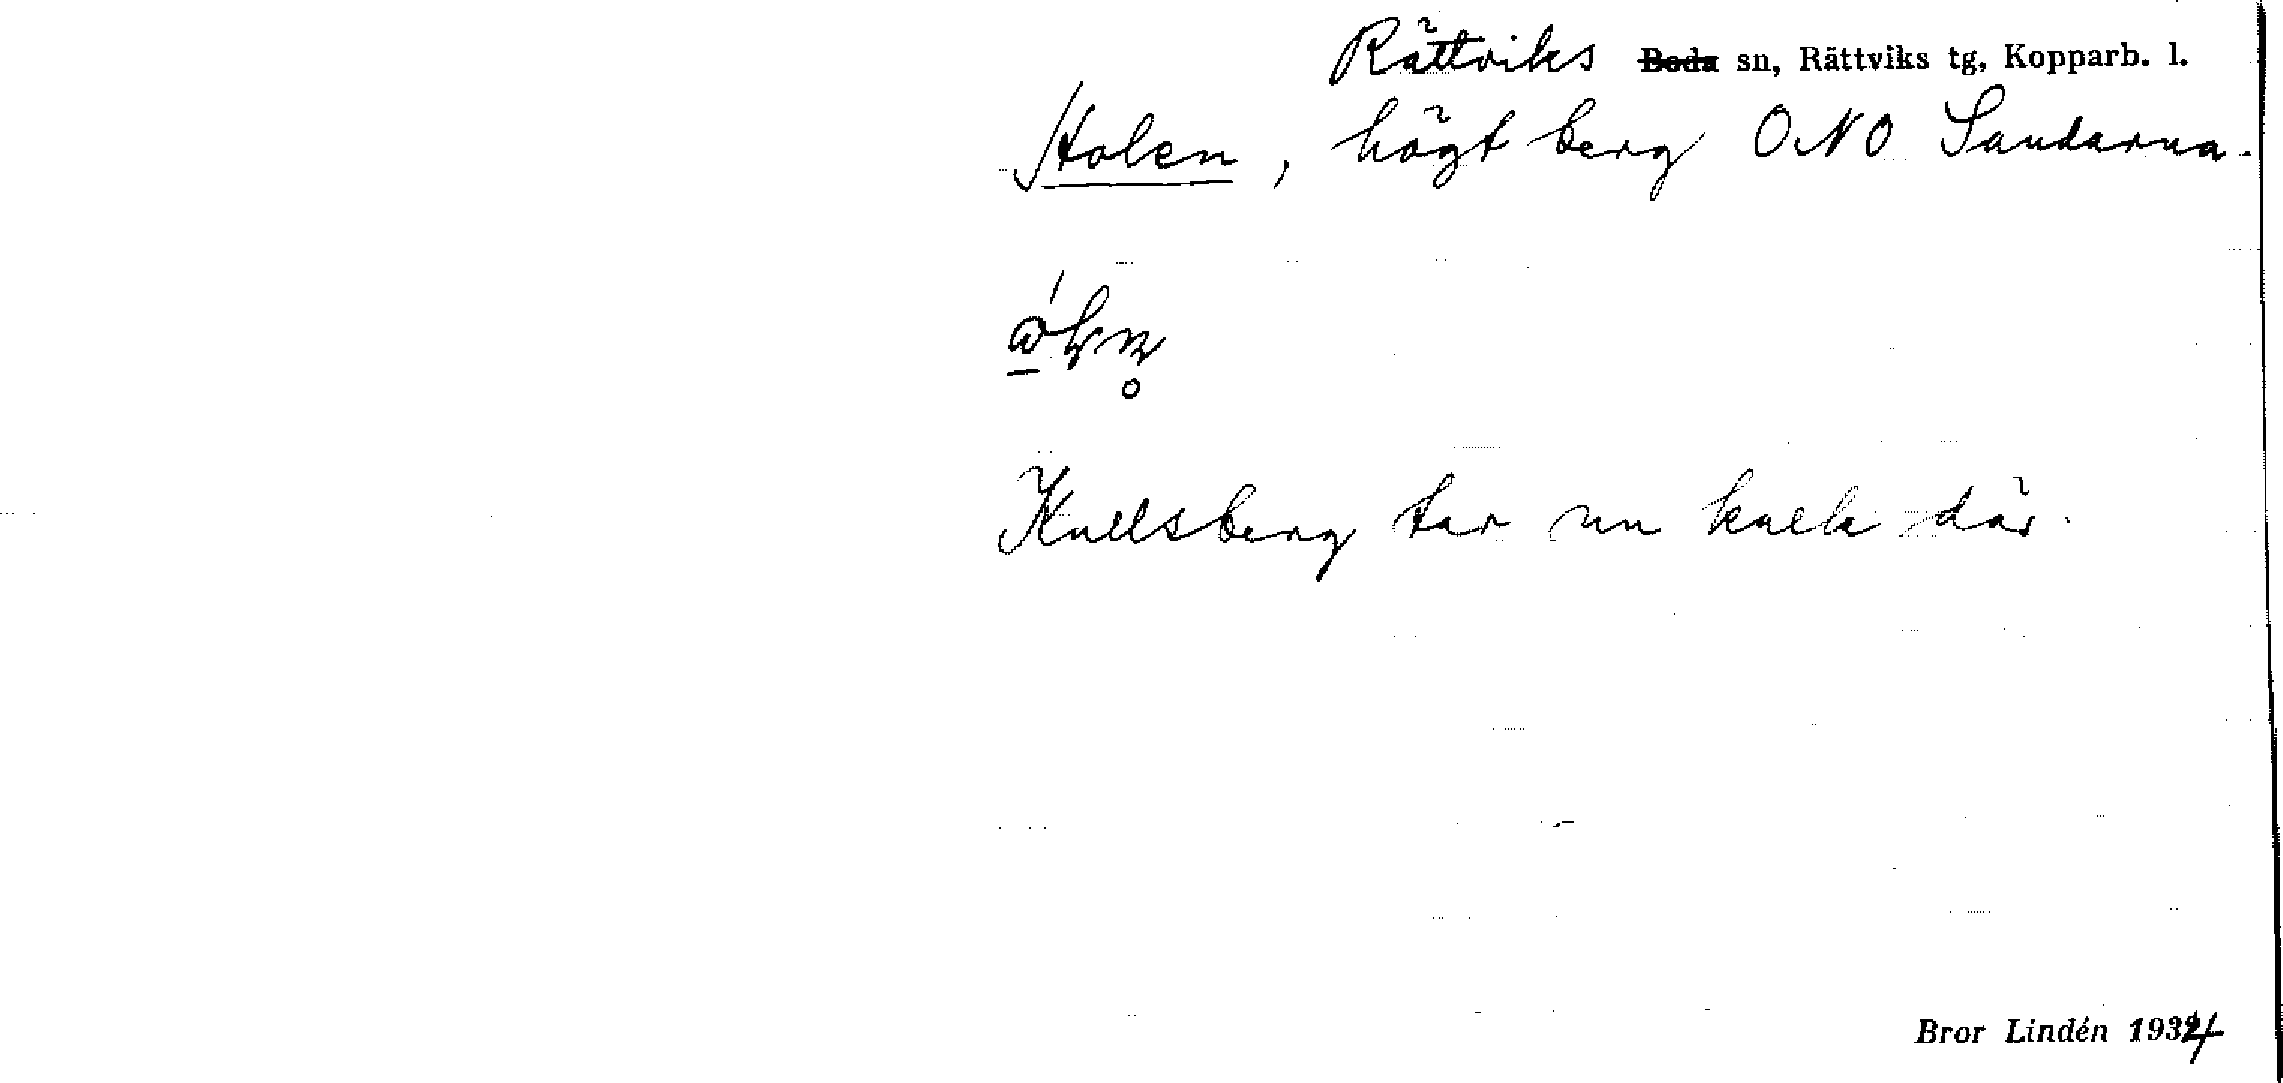 Rättviks Boda sn, Rättviks tg, Kopparb. l.
Holen, högt berg ONO Sandarna.
Kullsberg tar un kalk där.
Bror Lindén 1934